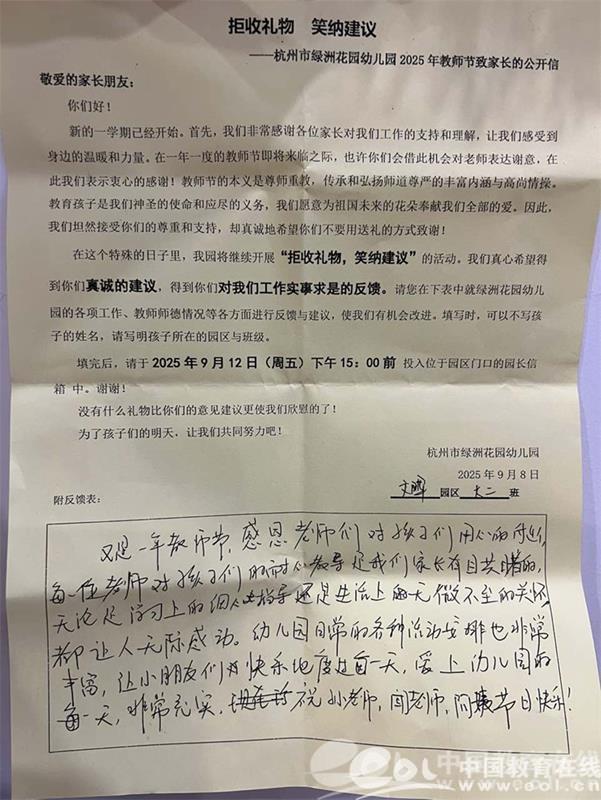 拒收礼物 笑纳建议
——杭州市绿洲花园幼儿园 2025 年教师节致家长的公开信
敬爱的家长朋友：
你们好！
新的一学期已经开始。首先，我们非常感谢各位家长对我们工作的支持和理解，让我们感受到
身边的温暖和力量。在一年一度的教师节即将来临之际，也许你们会借此机会对老师表达谢意，在
此我们表示衷心的感谢！教师节的本义是尊师重教，传承和弘扬师道尊严的丰富内涵与高尚情操。
教育孩子是我们神圣的使命和应尽的义务，我们愿意为祖国未来的花朵奉献我们全部的爱。因此，
我们坦然接受你们的尊重和支持，却真诚地希望你们不要用送礼的方式致谢！
在这个特殊的日子里，我园将继续开展“拒收礼物，笑纳建议”的活动。我们真心希望得
到你们真诚的建议，得到你们对我们工作实事求是的反馈。请您在下表中就绿洲花园幼儿
园的各项工作、教师师德情况等各方面进行反馈与建议，使我们有机会改进。填写时，可以不写孩
子的姓名，请写明孩子所在的园区与班级。
填完后，请于 2025 年 9 月 12 日（周五）下午 15：00 前 投入位于园区门口的园长信
箱 中。谢谢！
没有什么礼物比你们的意见建议更使我们欣慰的了！
为了孩子们的明天，让我们共同努力吧！
杭州市绿洲花园幼儿园
2025 年 9 月 8 日
附反馈表： 园区 大二 班
又是一年教师节，感恩老师们对孩子们用心的付出，
每一位老师对孩子们的耐心教导是我们家长有目共睹的，
无论是学习上的细心指导还是生活上的无微不至的关怀
都让人无际感动。幼儿园日常的各种活动安排也非常
丰富，让小朋友们快乐地度过每一天，爱上幼儿园的
每一天，非常充实，祝孙老师，闻老师，阿姨节日快乐！
中国教育在线
www.eol.cn